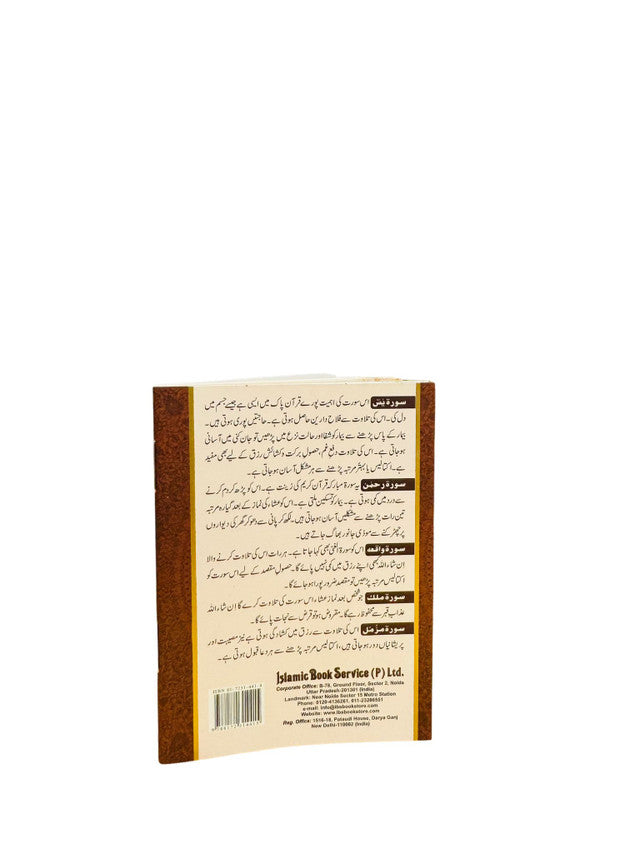 سورۃ یٰسٓ اس سورت کی اہمیت پورے قرآن پاک میں ایسی ہے جیسے جسم میں
دل کی۔ اس کی تلاوت سے فلاح دارین حاصل ہوتی ہے۔ حاجتیں پوری ہوتی ہیں۔
بیمار کے پاس پڑھنے سے بیمار کو شفا اور حالت نزع میں پڑھیں تو جان کنی میں آسانی
ہوتی ہے۔ اس کی تلاوت دفع غم، حصول برکت و کشائش رزق کے لیے بھی مفید
ہے۔ اکتالیس یا بہتر مرتبہ پڑھنے سے ہر مشکل آسان ہو جاتی ہے۔
سورۃ رحمٰن یہ سورۃ مبارکہ قرآن کریم کی زینت ہے۔ اس کو پڑھ کر دم کرنے
سے درد میں کمی ہوتی ہے۔ بیمار کو تسکین ملتی ہے۔ اس کو عشاء کی نماز کے بعد گیارہ مرتبہ
تین رات پڑھنے سے مشکلیں آسان ہو جاتی ہیں۔ لکھ کر پانی سے دھو کر گھر کی دیواروں
پر چھڑکنے سے موذی جانور بھاگ جاتے ہیں۔
سورۃ واقعہ اس کو سورۃ الغنیٰ بھی کہا جاتا ہے۔ ہر رات اس کی تلاوت کرنے والا
ان شاء اللہ کبھی اپنے رزق میں کمی نہیں پائے گا۔ حصول مقصد کے لیے اس سورت کو
اکتالیس مرتبہ پڑھیں تو مقصد ضرور پورا ہو جائے گا۔
سورۃ ملک جو شخص بعد نماز عشاء اس سورت کی تلاوت کرے گا ان شاء اللہ
عذاب قبر سے محفوظ رہے گا۔ مقروض ہو تو قرض سے نجات پائے گا۔
سورۃ مزمل اس کی تلاوت سے رزق میں کشادگی ہوتی ہے نیز مصیبت اور
پریشانیاں دور ہو جاتی ہیں، اکتالیس مرتبہ پڑھنے سے ہر دعا قبول ہوتی ہے۔
Islamic Book Service (P) Ltd.
Corporate Office: B-78, Ground Floor, Sector 2, Noida
Uttar Pradesh-201301 (India)
Landmark: Near Noida Sector 15 Metro Station
Phone: 0120-4136261, 011-23286551
e-mail: info@ibsbookstore.com
Website: www.ibsbookstore.com
Reg. Office: 1516-18, Pataudi House, Darya Ganj
New Delhi-110002 (India)